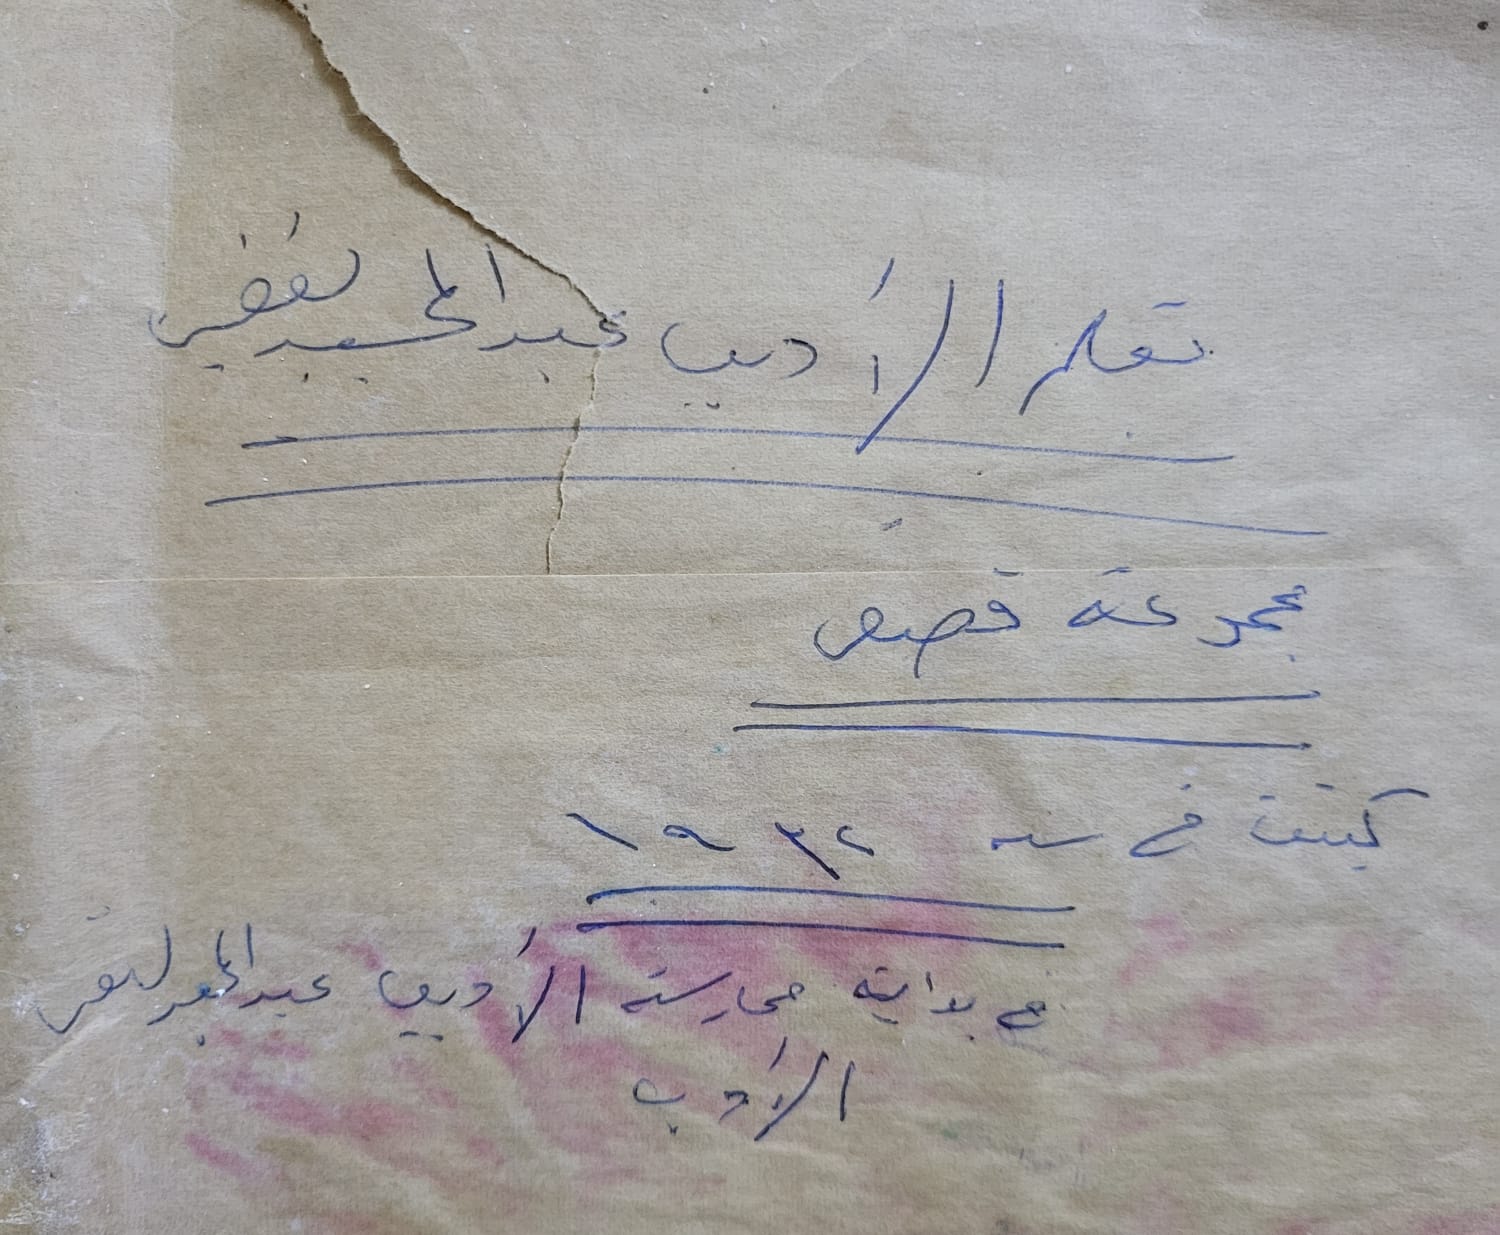 بقلم الأديب عبد المجيد لطفي
مجموعة قصص
كتبت في سنة ١٩٣٢
في بداية ممارسة الأديب عبد المجيد لطفي
الأدب